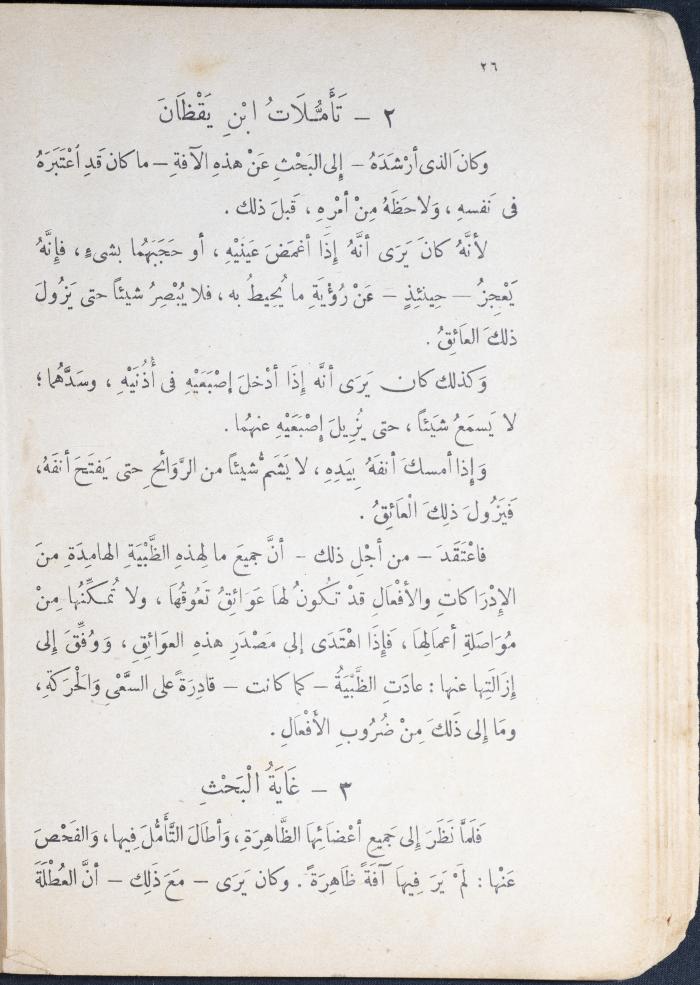 ٢٦
٢ – تَأَمُّلَاتُ ابْنِ يَقْظَانَ
وكانَ الذى أرْشَدَهُ – إلى البَحْثِ عَنْ هذِهِ الآفةِ – ما كان قَدِ اعْتَبَرَهُ
فى نَفسهِ ، وَلاحَظَهُ مِنْ أمْرِهِ ، قَبلَ ذلك .
لأنَّهُ كانَ يَرَى أنَّهُ إذَا أغمَضَ عَينَيْهِ ، أو حَجَبَهُما بشىءٍ ، فإنَّهُ
يَعْجِزُ – حِينَئِذٍ – عَنْ رُؤْيَةِ ما يُحِيطُ به ، فلا يُبْصِرُ شيئاً حتى يَزُولَ
ذلكَ العَائقُ .
وَكذلك كان يَرَى أنَّه إذَا أدْخلَ إصْبَعَيْهِ فى أُذُنَيْهِ ، وسَدَّهُما ؛
لا يَسمَعُ شيَئاً ، حتى يُزِيلَ إصْبَعَيْهِ عنهُما .
وَإذا أمسكَ أنفَهُ بِيَدِهِ ، لا يَشَمُّ شيئاً من الرَّوَائحِ حتى يَفتَحَ أنفَهُ،
فَيَزُولَ ذلِكَ الْعَائِقُ .
فاعْتَقَدَ – من أجْلِ ذلك – أنَّ جميعَ ما لِهذِهِ الظَّبْيَةِ الهامِدَةِ مِنَ
الإدْرَاكاتِ والأفْعَالِ قدْ تكُونُ لهَا عَوَائِقُ تَعُوقُهَا ، ولا تُمكِّنُها مِنْ
مُوَاصَلةِ أعمَالِهَا ، فَإذَا اهْتَدَى إلى مَصْدَرِ هذِهِ العوَائقِ ، وَوُفِّقَ إلى
إزَالَتِها عنها : عادَتِ الظَّبْيَةُ – كما كانت – قادِرَةً على السَّعْىِ وَالحْرَكَةِ ،
ومَا إلى ذَلكَ مِنْ ضُرُوبِ الأَفْعَالِ .
٣ – غَايَةُ الْبَحْثِ
فَلمَّا نَظَرَ إلى جَميعِ أعْضَائِهَا الظَّاهِرَةِ ، وَأطَالَ التَّأَمُّلَ فِيها ، وَالفَحْصَ
عَنْها : لَمْ يَرَ فِيهَا آفَةً ظَاهِرَةً . وكان يَرَى – مَعَ ذَلِكَ – أنَّ العُطْلَةَ